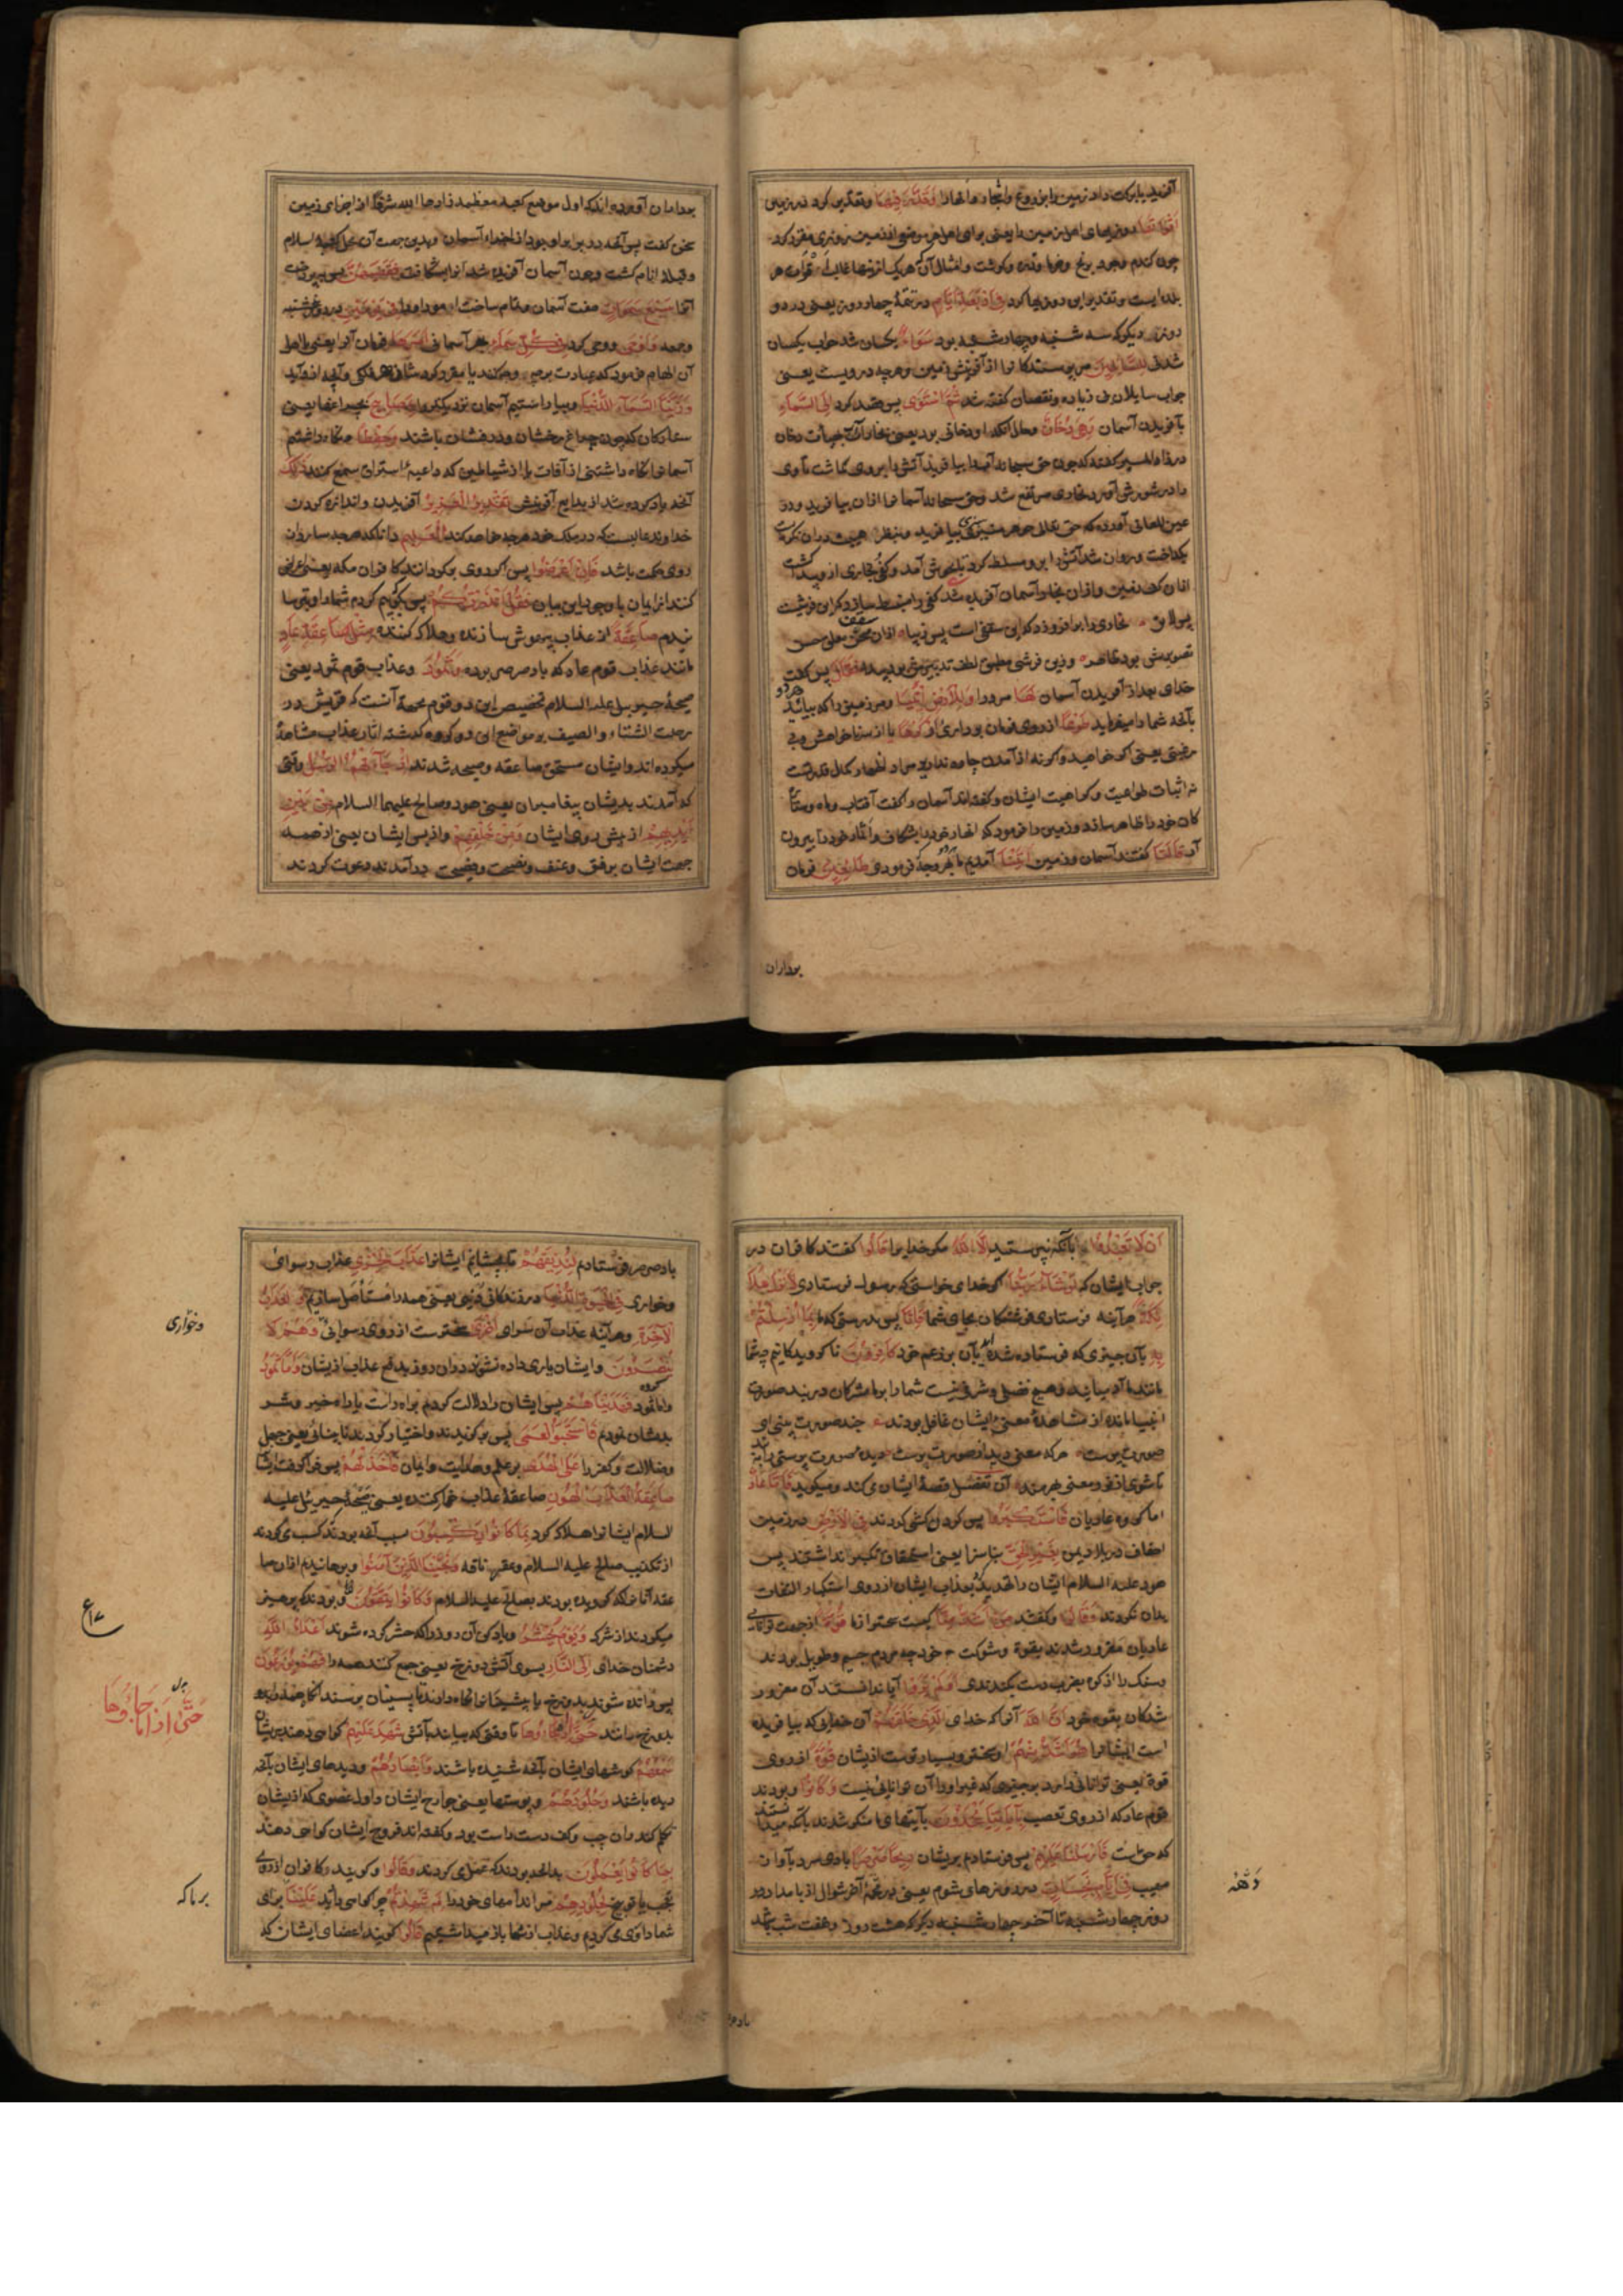 آفرید یا برکت داد زمین را بزروع واشجار وانهار وَقَدَّرَ فِیهَا وتقدیر کرد در زمین
اَقْوَاتَهَا روزیهای اهل زمین را یعنی برای اهل هر موضع از زمین روزی مقرر کرد
چون کندم وجو و برنج وخرما و کوشت وامثال آن که هر یک از اینها غالب اقوات هر
بلد است وتقدیر این روزیها کرد فِی اَرْبَعَةِ اَیَّامٍ در تتمهٔ چهار روز یعنی در دو
روز دیکر که سه شنبه و چهارشنبه بود سَوَاءً یکسان شد جواب یکسان
شدنی لِلسَّائِلِینَ مر پرسندکانرا از آفرینش زمین وهر چه در ویست یعنی
جواب سایلان بی زیاده ونقصان کفته شد ثُمَّ اسْتَوَی پس قصد کرد اِلَی السَّمَاءِ
بآفریدن آسمان وَهِیَ دُخَانٌ وحال آنکه او دخانی بود یعنی بخار آب بهیأت دخان
در زاد المسیر کفته که چون حق سبحانه آب را بیافرید آتش را بر وی کماشت تا وی
را در شورش آورد بخاری مرتفع شد وحق سبحانه آسمانها از ان بیافرید ودر
عین المعانی آورده که حق تعالی جوهر سبزی بیافرید وبنظر هیبت در ان نکریست
بکداخت وروان شد آتش را بر و مسلط کرد تا بجوش آمد وکفی وبخاری از و پیدا کشت
از ان کف زمین و از ان بخار آسمان آفریده شد
خدای بعد از آفریدن آسمان لَهَا مر ورا وَلِلْاَرْضِ ائْتِیَا ومر زمین را که بیائید هر دو
بآنچه شما را میفرماید طَوْعًا از روی فرمان برداری اَوْ کَرْهًا یا از سر ناخواهش وبی
رغبتی یعنی اکر خواهید واکر نه از آمدن چاره ندارید مراد اظهار کمال قدرتست
نه اثبات طواعیت و کراهیت ایشان وکفته اند آسمان را کفت آفتاب وماه وستار
کان خود را ظاهر ساز و زمین را فرمود که انهار خود را بشکاف واثمار خود را بیرون
آر قَالَتَا کفتند آسمان وزمین اَتَیْنَا آمدیم بآنچه فرمودی طَائِعِینَ فرمان
برداران
برداران آورده اند که اول موضع کعبهٔ معظمه زادها الله شرفا از اجزای زمین
سخن کفت پس آنچه در برابر او بود از اجزاء آسمان وبدین جهت آن محل کعبهٔ اسلام
وقبلهٔ انام کشت وچون آسمان آفریده شد آنرا بشکافت فَقَضٰهُنَّ پس بپرداخت
آنها سَبْعَ سَمٰوَاتٍ هفت آسمان وتمام ساخت امور او را فِی یَوْمَیْنِ در دو روز پنجشنبه
وجمعه وَاَوْحَی ووحی کرد فِی کُلِّ سَمَاءٍ بهر آسمانی اَمْرَهَا فرمان آنرا یعنی با اهل
آن الهام فرمود که عبادت برچه وجه کنند یا مقرر کرد شان هر فلکی وآنچه از و آید
وَزَیَّنَّا السَّمَاءَ الدُّنْیَا وبیاراستیم آسمان نزدیکتر را بِمَصَابِیحَ بچراغها یعنی
ستارکان که چون چراغ رخشان ودرفشان باشند وَحِفْظًا ونکاه داشتیم
آسمانرا نکاه داشتنی از آفات یا از شیاطین که داعیهٔ استراق سمع کنند ذٰلِکَ
آنچه یاد کرده شد از بدایع آفرینش تَقْدِیرُ الْعَزِیزِ آفریدن واندازه کردن
خداوند غالبست که در ملک خود هر چه خواهد کند الْعَلِیمِ دانا که هر چه سازد از
روی حکمت باشد فَاِنْ اَعْرَضُوا پس اکر روی بکردانند کافران مکه یعنی اعراض
کنند از ایمان با وجود این بیان فَقُلْ اَنْذَرْتُکُمْ پس بکو بیم کردم شما را وترسا
نیدم صَاعِقَةً از عذاب بیهوش سازنده وهلاک کننده مِثْلَ صَاعِقَةِ عَادٍ
مانند عذاب قوم عاد که باد صرصر بوده وَثَمُودَ وعذاب قوم ثمود یعنی
صیحهٔ جبریل علیه السلام تخصیص این دو قوم بجهة آنست که قریش در
رحلت الشتاء والصیف بر مواضع این دو کروه کذشته آثار عذاب مشاهده
میکرده اند وایشان مستحق صاعقه وصیحه شدند اِذْ جَاءَتْهُمُ الرُّسُلُ وقتی
که آمدند بدیشان پیغامبران یعنی هود وصالح علیهما السلام مِنْ بَیْنِ
اَیْدِیهِمْ از پیش روی ایشان وَمِنْ خَلْفِهِمْ واز پس ایشان یعنی از همه
جهت ایشان برفق وعنف ونصیحت وفضیحت درآمدند ودعوت کردند
اَنْ لَا تَعْبُدُوا بآنکه نپرستید اِلَّا اللّٰهَ مکر خدایرا قَالُوا کفتند کافران در
جواب ایشان که لَوْ شَاءَ رَبُّنَا اکر خدای ما خواستی که رسول فرستادی لَاَنْزَلَ
مَلٰئِکَةً هر آینه فرستادی فرشتکان بجای شما فَاِنَّا پس بدرستی که ما بِمَا اُرْسِلْتُمْ
بِهِ بآن چیزی که فرستاده شده اید بآن بزعم خود کَافِرُونَ نا کرویدکانیم چه شما
مانند ما آدمیانید وهیچ فضلی وشرفی نیست شما را بر ما مشرکان در بند صورت
انبیا مانده از مشاهدهٔ معنی ایشان غافل بودند چند صورت بینی ای
صورت پرست هر که معنی دید از صورت برست دیدهٔ صورت پرستی را ببند
تا شوی از نور معنی بهره مند آن تفصیل قصهٔ ایشان می کند ومیکوید فَاَمَّا عَادٌ
اما کروه عادیان فَاسْتَکْبَرُوا پس کردن کشی کردند فِی الْاَرْضِ در زمین
احقاف در بلاد یمن بِغَیْرِ الْحَقِّ بناسزا یعنی استحقاق تکبر نداشتند پس
هود علیه السلام ایشان را تهدید بعذاب ایشان از روی استکبار التفات
بدان نکردند وَقَالُوا وکفتند مَنْ اَشَدُّ مِنَّا کیست سختر از ما قُوَّةً از جهت توانایی
عادیان مغرور شدند بقوة وشوکت خود چه مردم جسیم وطویل بودند
وسنک را از کوه بضرب دست بکندندی اَوَلَمْ یَرَوْا آیا ندانستند آن مغرور
شدکان بقوت خود اَنَّ اللّٰهَ آنرا که خدای الَّذِی خَلَقَهُمْ آن خدایی که بیافریده
است ایشانرا هُوَ اَشَدُّ مِنْهُمْ او سختر وبسیارترست از ایشان قُوَّةً از روی
قوة یعنی توانائی دارد بر چیزی که غیر او را آن توانائی نیست وَکَانُوا وبودند
قوم عاد که از روی تعصب بِاٰیَاتِنَا یَجْحَدُونَ بآیتهای ما منکر شدند بآنکه میدانستند
که حق است فَاَرْسَلْنَا عَلَیْهِمْ پس فرستادیم بر ایشان رِیحًا صَرْصَرًا بادی سرد بآواز
مهیب فِی اَیَّامٍ نَحِسَاتٍ در روزهای شوم یعنی در آخر شوال از بامداد
روز چهارشنبه تا آخر چهارشنبه دیکر که هشت روز وهفت شب باشد
باد صر
باد صرصر فرستادم لِنُذِیقَهُمْ تا بچشانیم ایشانرا عَذَابَ الْخِزْیِ عذاب رسوائی
وخواری فِی الْحَیٰوةِ الدُّنْیَا در زندکانی دنیا یعنی همه را مستأصل سازیم وَلَعَذَابُ
الْاٰخِرَةِ وهر آینه عذاب آن سرای اَخْزَی سخترست از روی رسوائی وَهُمْ لَا
یُنْصَرُونَ وایشان یاری داده نشوند در ان روز بدفع عذاب از ایشان وَاَمَّا ثَمُودُ
واما کروه ثمود فَهَدَیْنَاهُمْ پس ایشان را دلالت کردیم براه راست یا راه خیر وشر
بدیشان نمودیم فَاسْتَحَبُّوا الْعَمَی پس برکزیدند واختیار کردند نابینائی یعنی جهل
وضلالت وکفر را عَلَی الْهُدَی بر علم وهدایت وایمان فَاَخَذَتْهُمْ پس فرا کرفت ایشانرا
صَاعِقَةُ الْعَذَابِ الْهُونِ صاعقهٔ عذاب خوار کننده یعنی صیحهٔ جبریل علیه
السلام ایشانرا هلاک کرد بِمَا کَانُوا یَکْسِبُونَ سبب آنچه بودند کسب می کردند
از تکذیب صالح علیه السلام وعقر ناقه وَنَجَّیْنَا الَّذِینَ اٰمَنُوا وبرهانیدیم از ان صا
عقه آنانرا که کرویده بودند بصالح علیه السلام وَکَانُوا یَتَّقُونَ وبودند که پرهیز
میکردند از شرک وَیَوْمَ یُحْشَرُ ویاد کن آن روز را که حشر کرده شوند اَعْدَاءُ اللّٰهِ
دشمنان خدای اِلَی النَّارِ بسوی آتش دوزخ یعنی جمع کنند همه را فَهُمْ یُوزَعُونَ
پس رانده شوند بدوزخ یا پیشینانرا نکاه دارند تا پسینان برسند آنکاه همه را
بدوزخ رانند حَتَّی اِذَا مَا جَاؤُهَا تا وقتی که بیایند بآتش شَهِدَ عَلَیْهِمْ کواهی دهند بر ایشان
سَمْعُهُمْ کوشهای ایشان بآنچه شنیده باشند وَاَبْصَارُهُمْ ودیدهای ایشان بآنچه
دیده باشند وَجُلُودُهُمْ وپوستها یعنی جوارح ایشان واول عضوی که از ایشان
تکلم کند ران چپ وکف دست راست بود وکفته اند فروج ایشان کواهی دهند
بِمَا کَانُوا یَعْمَلُونَ بدانچه بودند که عمل می کردند وَقَالُوا وکویند کافران از روی
تعجب یا توبیخ لِجُلُودِهِمْ مر اندامهای خود را لِمَ شَهِدْتُمْ چرا کواهی دادید عَلَیْنَا برای
شما داوری می کردیم وعذاب از شما باز میداشتیم قَالُوا کویند اعضای ایشان که
وخواری
ع ١٧
حَتَّی اِذَا مَا جَاؤُهَا
بر ما که